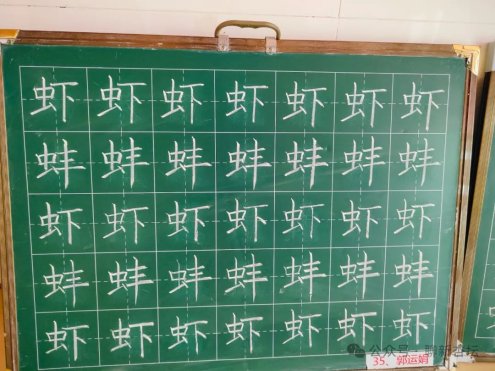 虾虾虾虾虾虾虾
蚌蚌蚌蚌蚌蚌蚌
虾虾虾虾虾虾虾
蚌蚌蚌蚌蚌蚌蚌
虾虾虾虾虾虾虾
35、郭运娟
公众号·鹏新杏坛